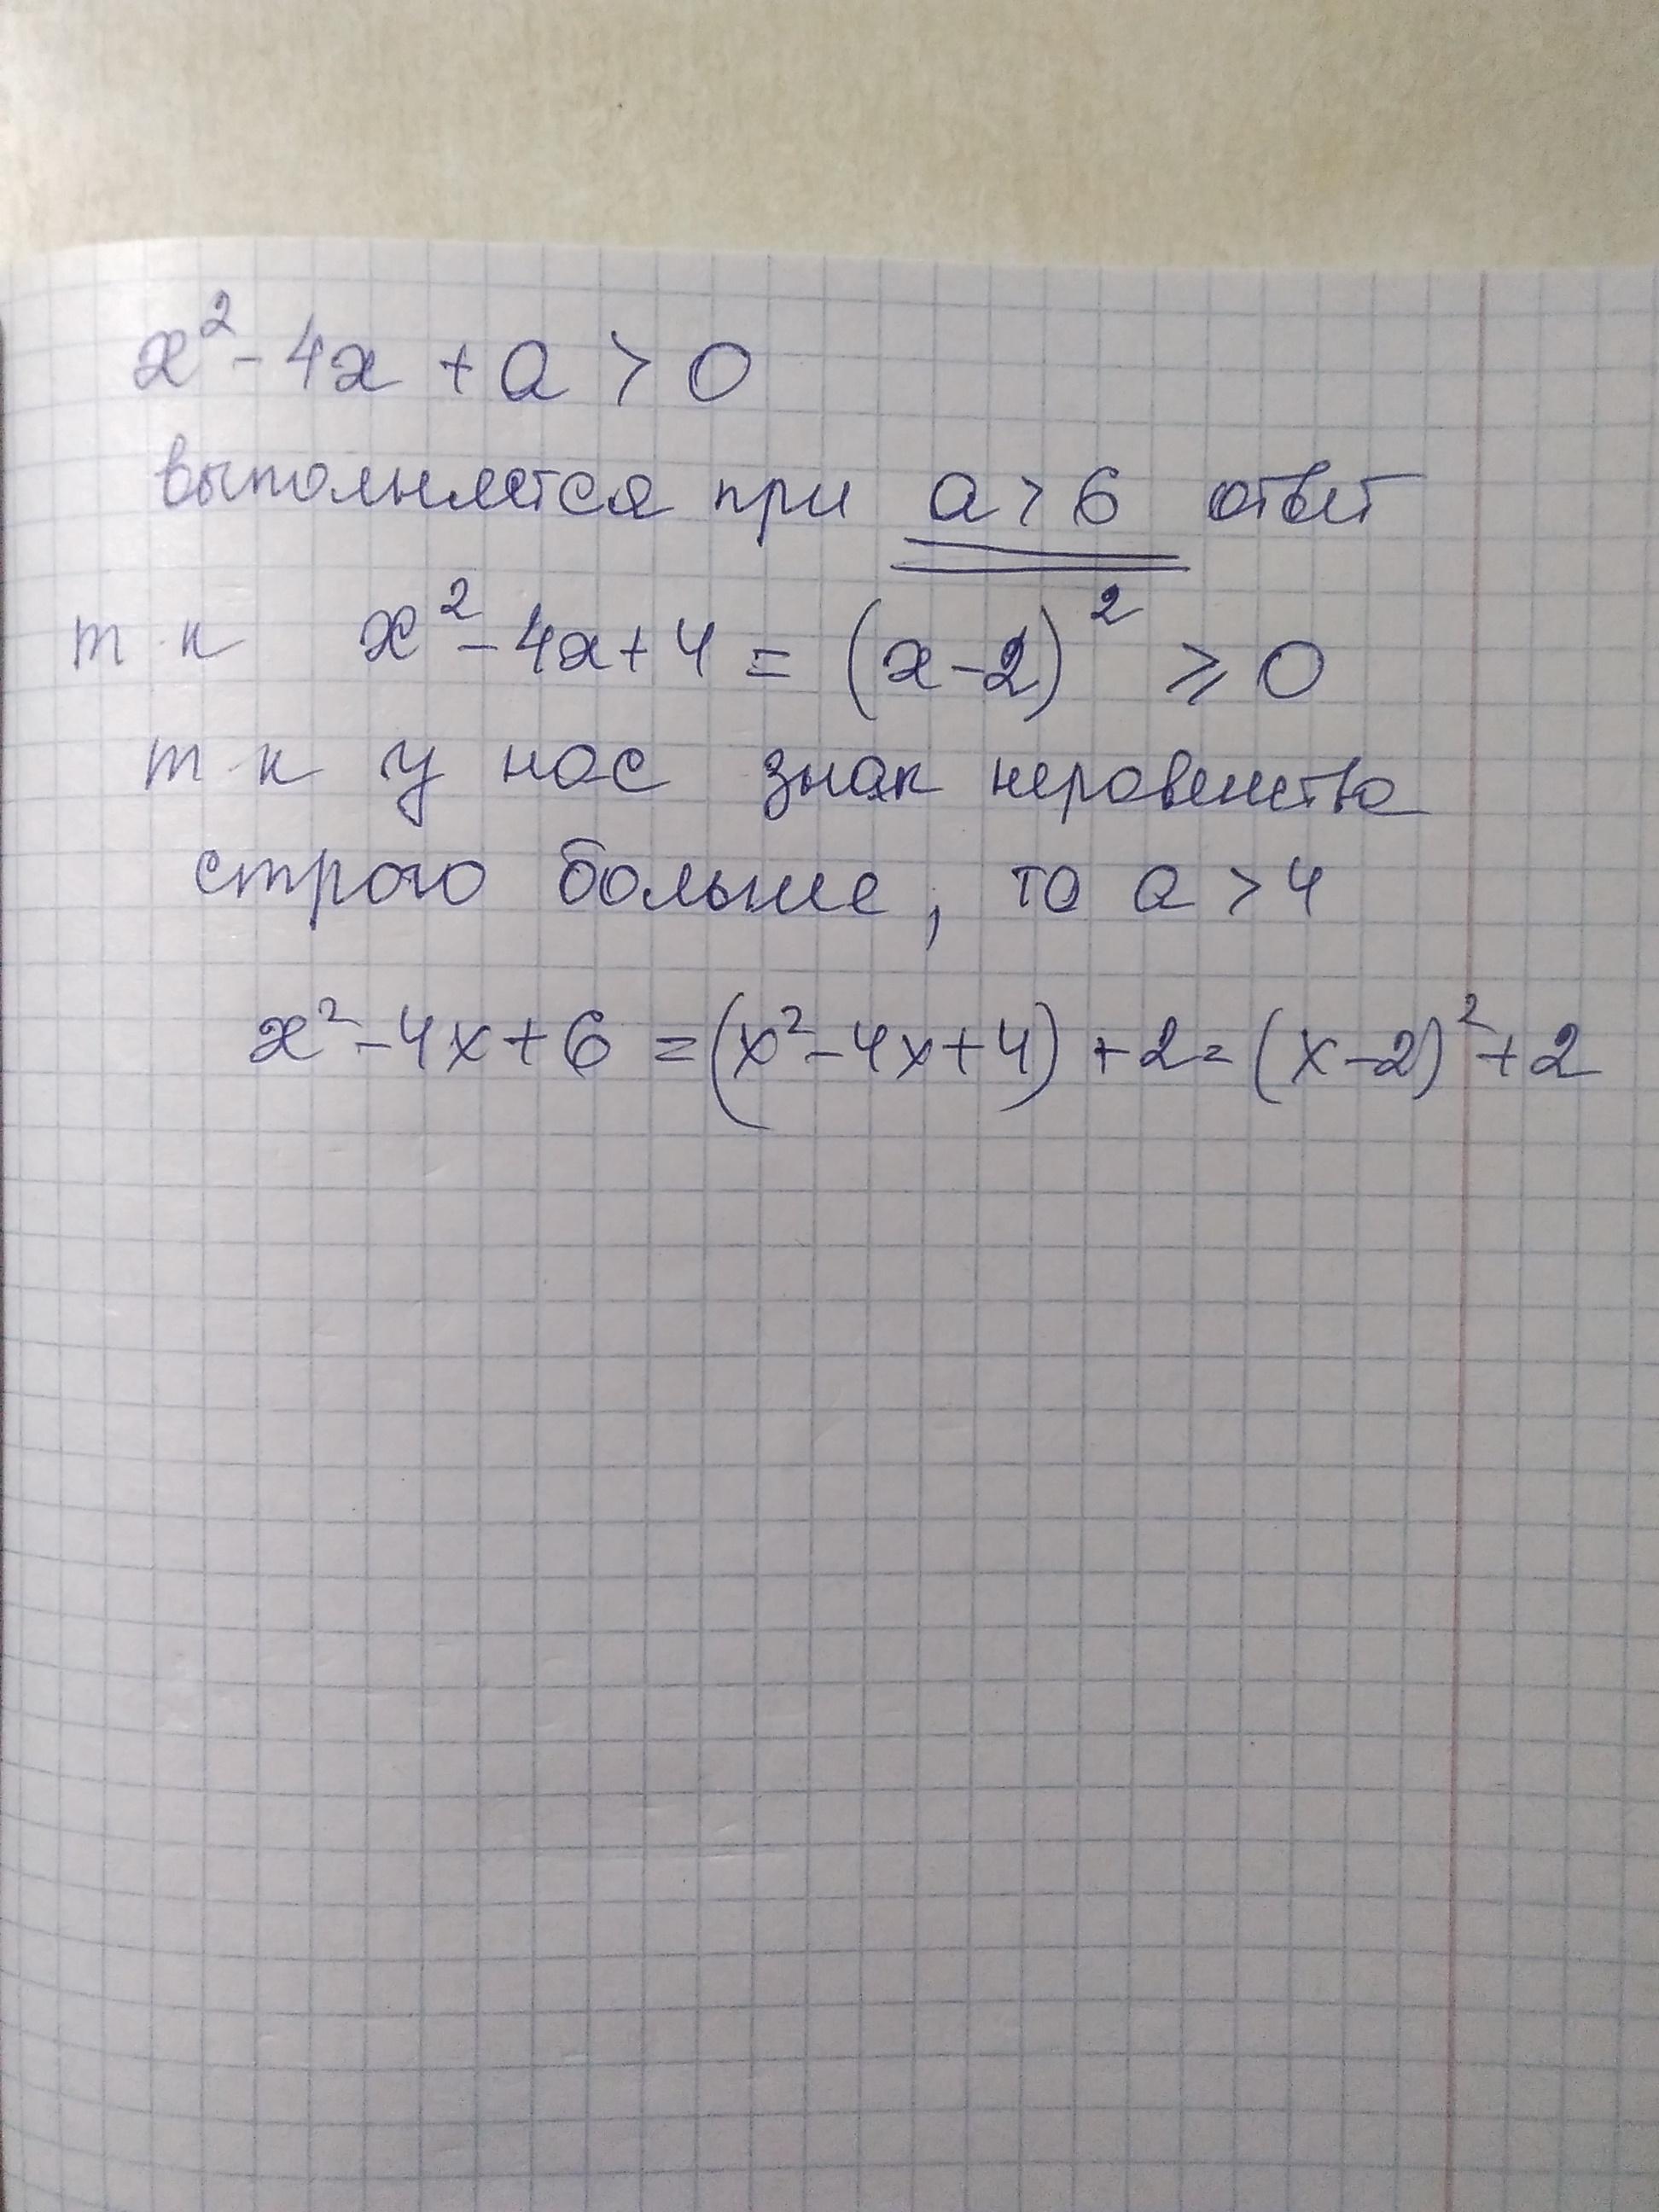 x² - 4x + a > 0
выполняется при a > 6 ответ
т к x² - 4x + 4 = (x - 2)² ⩾ 0
т к у нас знак неравенства
строго больше, то a > 4
x² - 4x + 6 = (x² - 4x + 4) + 2 = (x - 2)² + 2